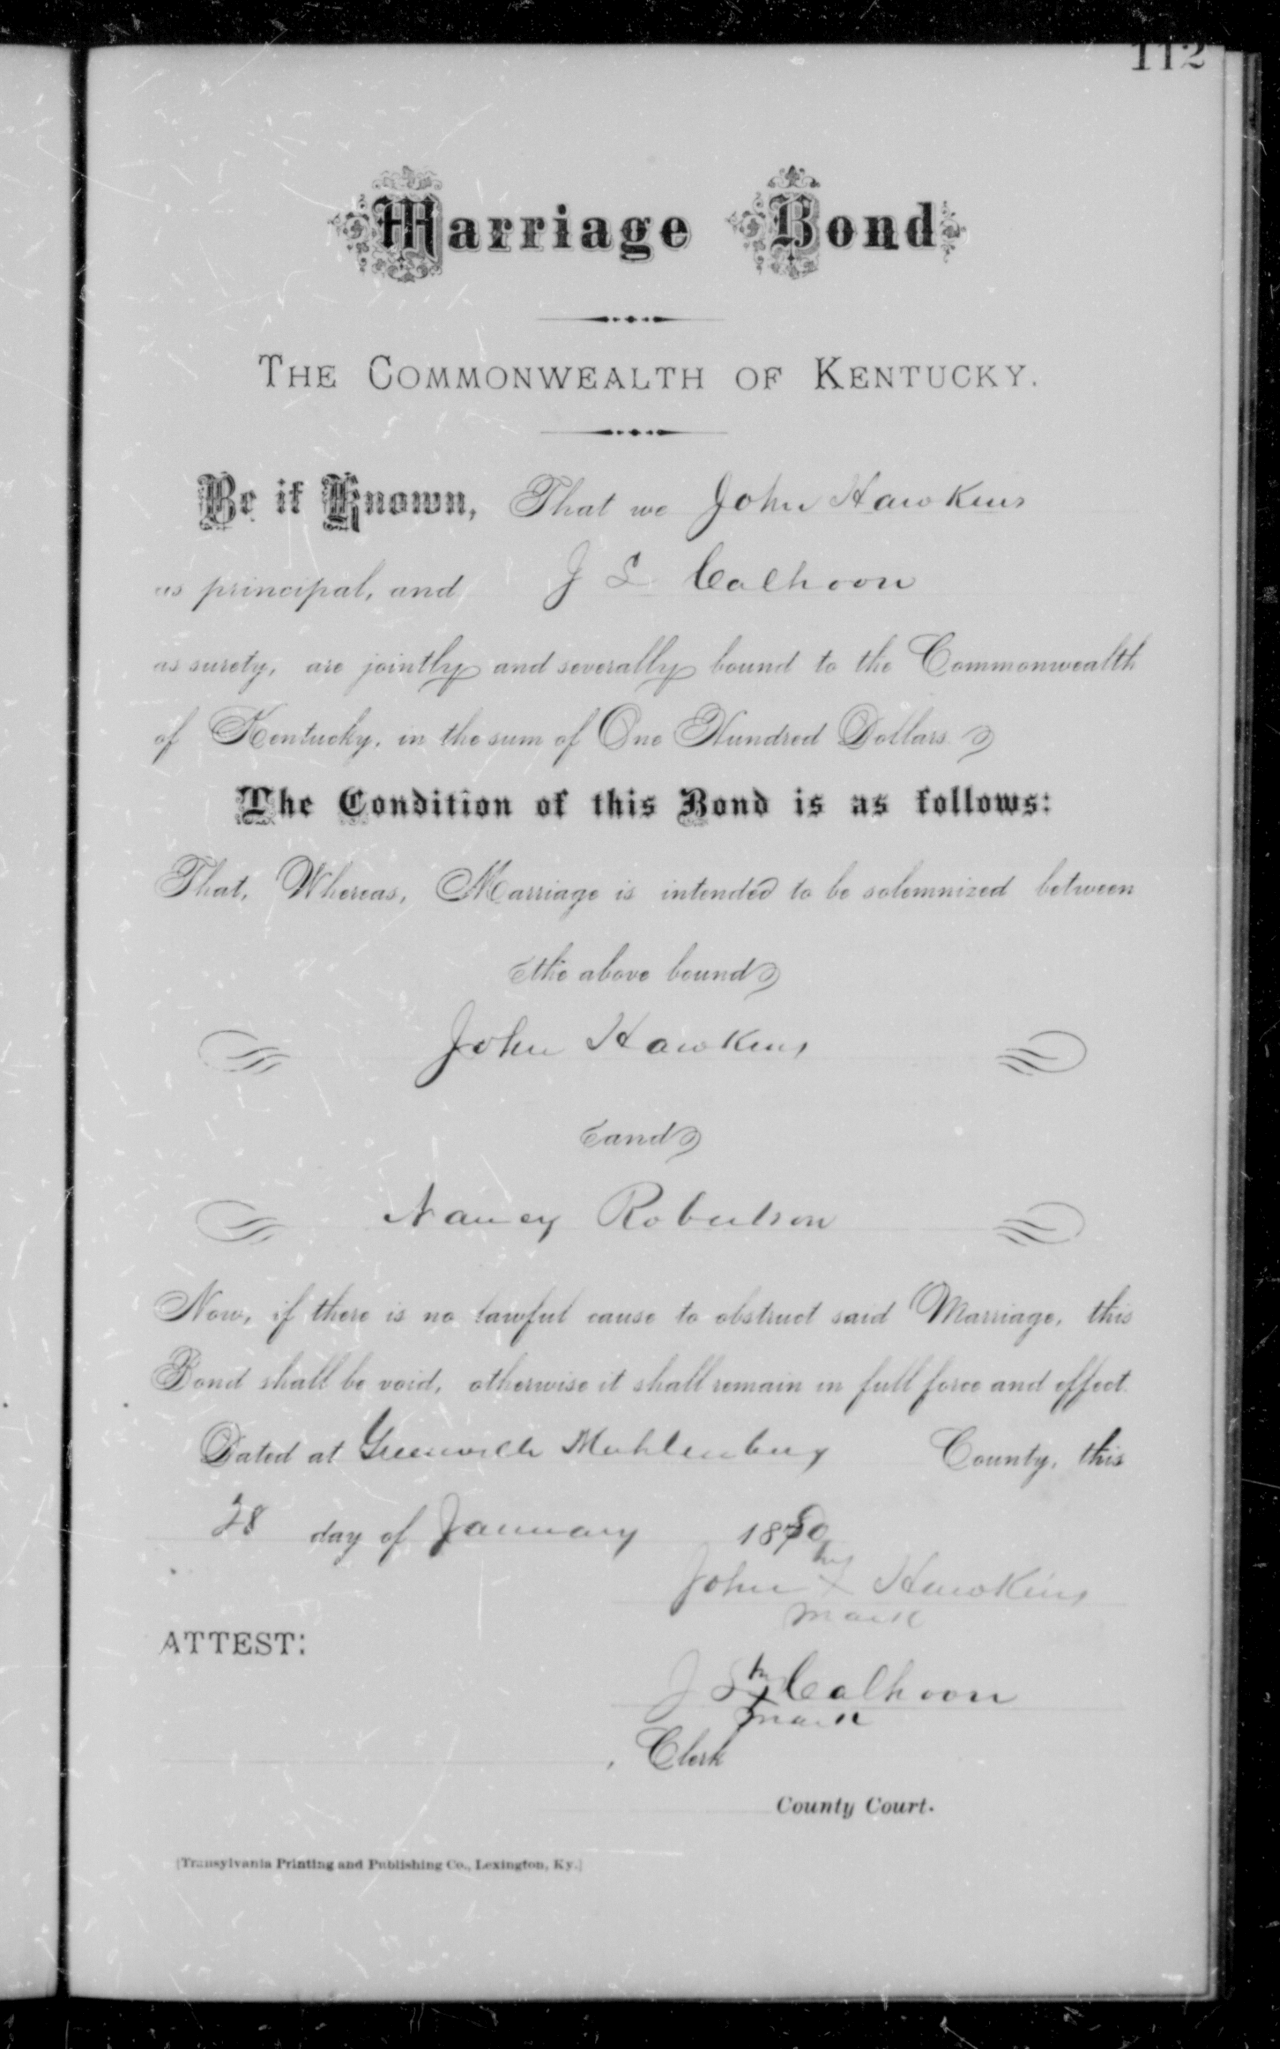 112
Marriage Bond
THE COMMONWEALTH OF KENTUCKY.
Be it Known, That we John Hawkins
as principal, and J S Calhoon
as surety, are jointly and severally bound to the Commonwealth
of Kentucky, in the sum of One Hundred Dollars
The Condition of this Bond is as follows:
That, Whereas, Marriage is intended to be solemnized between
the above bound
John Hawkins
and
Nancy Robertson
Now, if there is no lawful cause to obstruct said Marriage, this
Bond shall be void, otherwise it shall remain in full force and effect.
Dated at Greenville Muhlenburg County, this
28 day of January 1880
his
John X Hawkins
mark
ATTEST:
J S X Calhoon
mark
, Clerk
County Court.
[Transylvania Printing and Publishing Co., Lexington, Ky.]